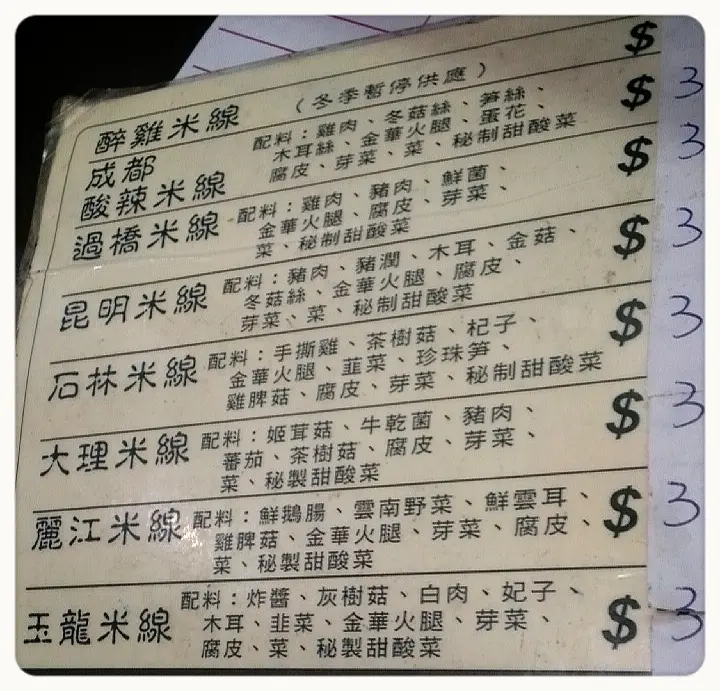 醉雞米線 （冬季暫停供應） $
成都
酸辣米線 配料：雞肉、冬菇絲、筍絲、 $ 3
木耳絲、金華火腿、蛋花、
腐皮、芽菜、菜、秘制甜酸菜
過橋米線 配料：雞肉、豬肉、鮮菌、 $ 3
金華火腿、腐皮、芽菜、
菜、秘制甜酸菜
昆明米線 配料：豬肉、豬潤、木耳、金菇、 $ 3
冬菇絲、金華火腿、腐皮、
芽菜、菜、秘制甜酸菜
石林米線 配料：手撕雞、茶樹菇、杞子、 $ 3
金華火腿、韮菜、珍珠筍、
雞脾菇、腐皮、芽菜、秘制甜酸菜
大理米線 配料：姬茸菇、牛乾菌、豬肉、 $ 3
蕃茄、茶樹菇、腐皮、芽菜、
菜、秘製甜酸菜
麗江米線 配料：鮮鵝腸、雲南野菜、鮮雲耳、 $ 3
雞脾菇、金華火腿、芽菜、腐皮、
菜、秘製甜酸菜
玉龍米線 配料：炸醬、灰樹菇、白肉、妃子、 $ 3
木耳、韭菜、金華火腿、芽菜、
腐皮、菜、秘製甜酸菜